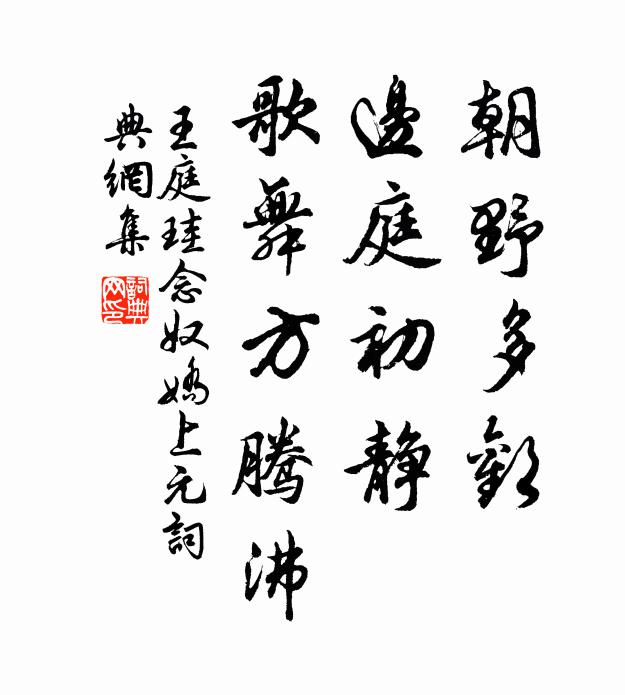 朝野多歡
邊庭初静
歌舞方騰沸
王庭珪念奴嬌上元詞
典網集
詞典网印